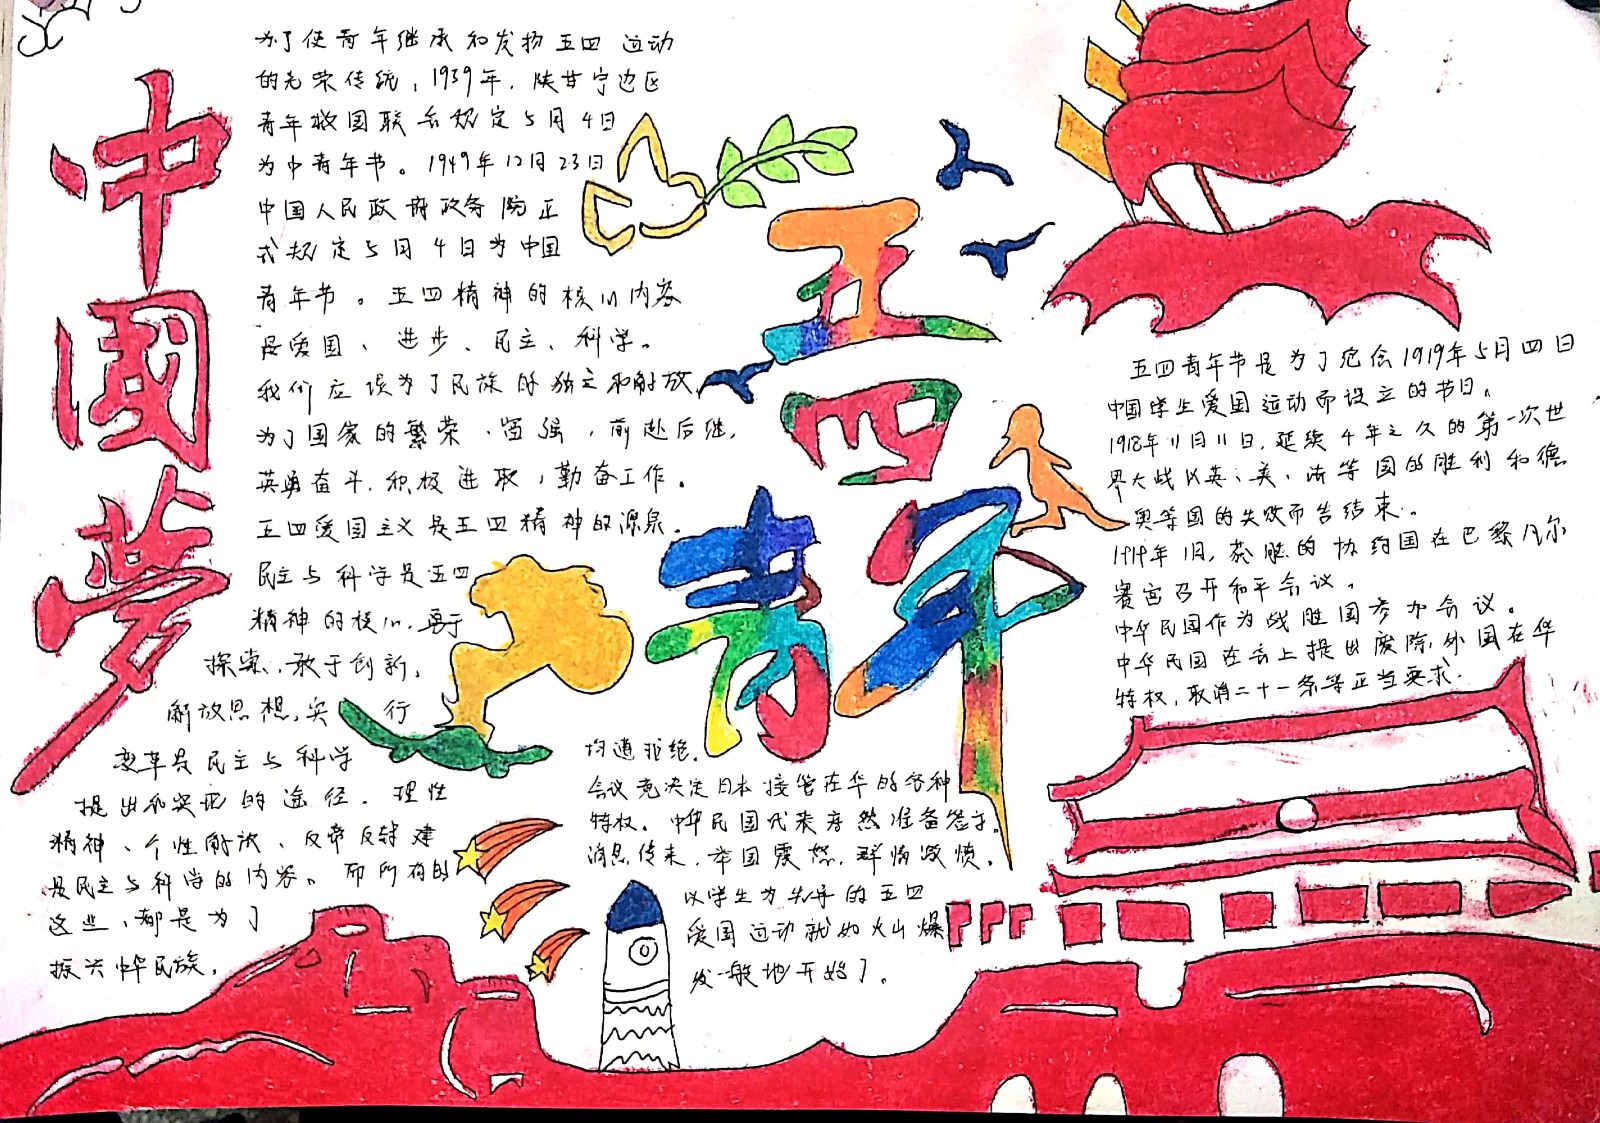 中國夢
为了使青年继承和发扬五四运动
的光荣传统，1939年，陕甘宁边区
青年救国联合规定5月4日
为中青年节。1949年12月23日
中国人民政府政务院正
式规定5月4日为中国
青年节。五四精神的核心内容
是爱国、进步、民主、科学。
我们应该为了民族的独立和解放，
为了国家的繁荣、富强，前赴后继，
英勇奋斗，积极进取，勤奋工作。
五四爱国主义是五四精神的源泉。
民主与科学是五四
精神的核心，勇于
探索、敢于创新，
解放思想，实行
变革是民主与科学
提出和实现的途径，理性
精神、个性解放、反帝反封建
是民主与科学的内容。而所有的
这些，都是为了
振兴中华民族。
五四
青年
五四青年节是为了纪念1919年5月四日
中国学生爱国运动而设立的节日。
1918年11月11日，延续4年之久的第一次世
界大战以英、美、法等国的胜利和德
奥等国的失败而告结束。
1919年1月，获胜的协约国在巴黎凡尔
赛宫召开和平会议。
中华民国作为战胜国参加会议。
中华民国在会上提出废除外国在华
特权，取消二十一条等正当要求.
均遭拒绝.
会议竟决定日本接管在华的各种
特权。中华民国代表居然准备签字。
消息传来，举国震怒，群情激愤。
以学生为先导的五四
爱国运动就如火山爆
发一般地开始了。